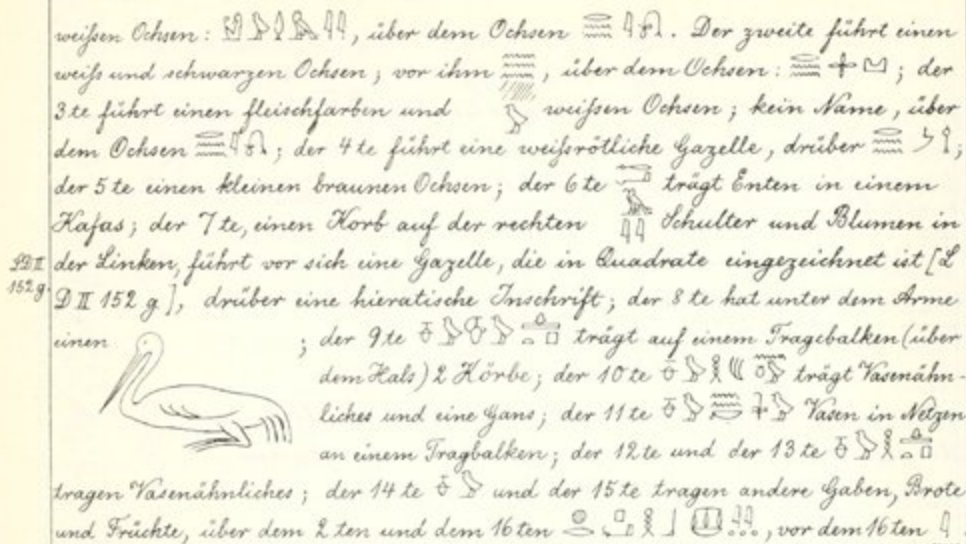 weißen Ochsen: , über dem Ochsen . Der zweite führt einen
weiß und schwarzen Ochsen; vor ihm , über dem Ochsen: ; der
3te führt einen fleischfarben und weißen Ochsen; kein Name, über
dem Ochsen ; der 4te führt eine weißrötliche Gazelle, drüber ;
der 5te einen kleinen braunen Ochsen; der 6te trägt Enten in einem
Kafas; der 7te, einen Korb auf der rechten Schulter und Blumen in
LD II
152g.
der Linken, führt vor sich eine Gazelle, die in Quadrate eingezeichnet ist [L
D II 152 g], drüber eine hieratische Inschrift; der 8te hat unter dem Arme
einen ; der 9te trägt auf einem Tragebalken (über
dem Hals) 2 Körbe; der 10te trägt Vasenähn-
liches und eine Gans; der 11te Vasen in Netzen
an einem Tragbalken; der 12te und der 13te
tragen Vasenähnliches; der 14te und der 15te tragen andere Gaben, Brote
und Früchte, über dem 2ten und dem 16ten , vor dem 16ten